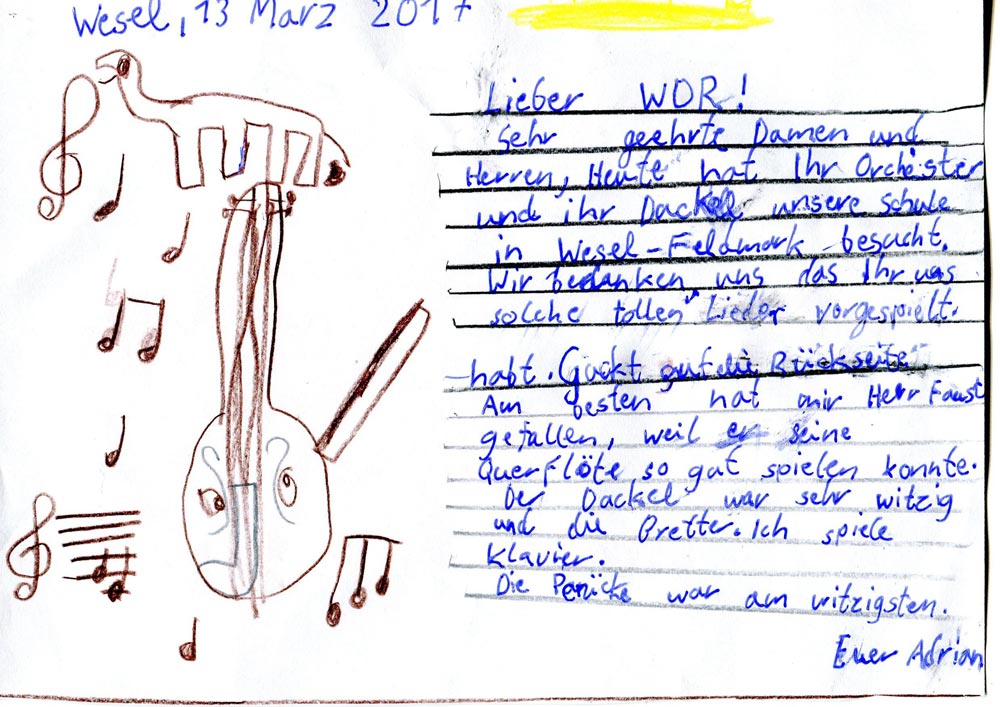 Wesel, 13 März 2017
Lieber WDR!
Sehr geehrte Damen und
Herren, Heute hat Ihr Orchester
und ihr Dackel unsere Schule
in Wesel-Feldmark besucht.
Wir bedanken uns das Ihr uns
solche tollen Lieder vorgespielt.
habt. Guckt auf die Rückseite
Am besten hat mir Herr Faust
gefallen, weil er seine
Querflöte so gut spielen konnte.
Der Dackel war sehr witzig
und die Bretter. Ich spiele
Klavier.
Die Perücke war am witzigsten.
Euer Adrian